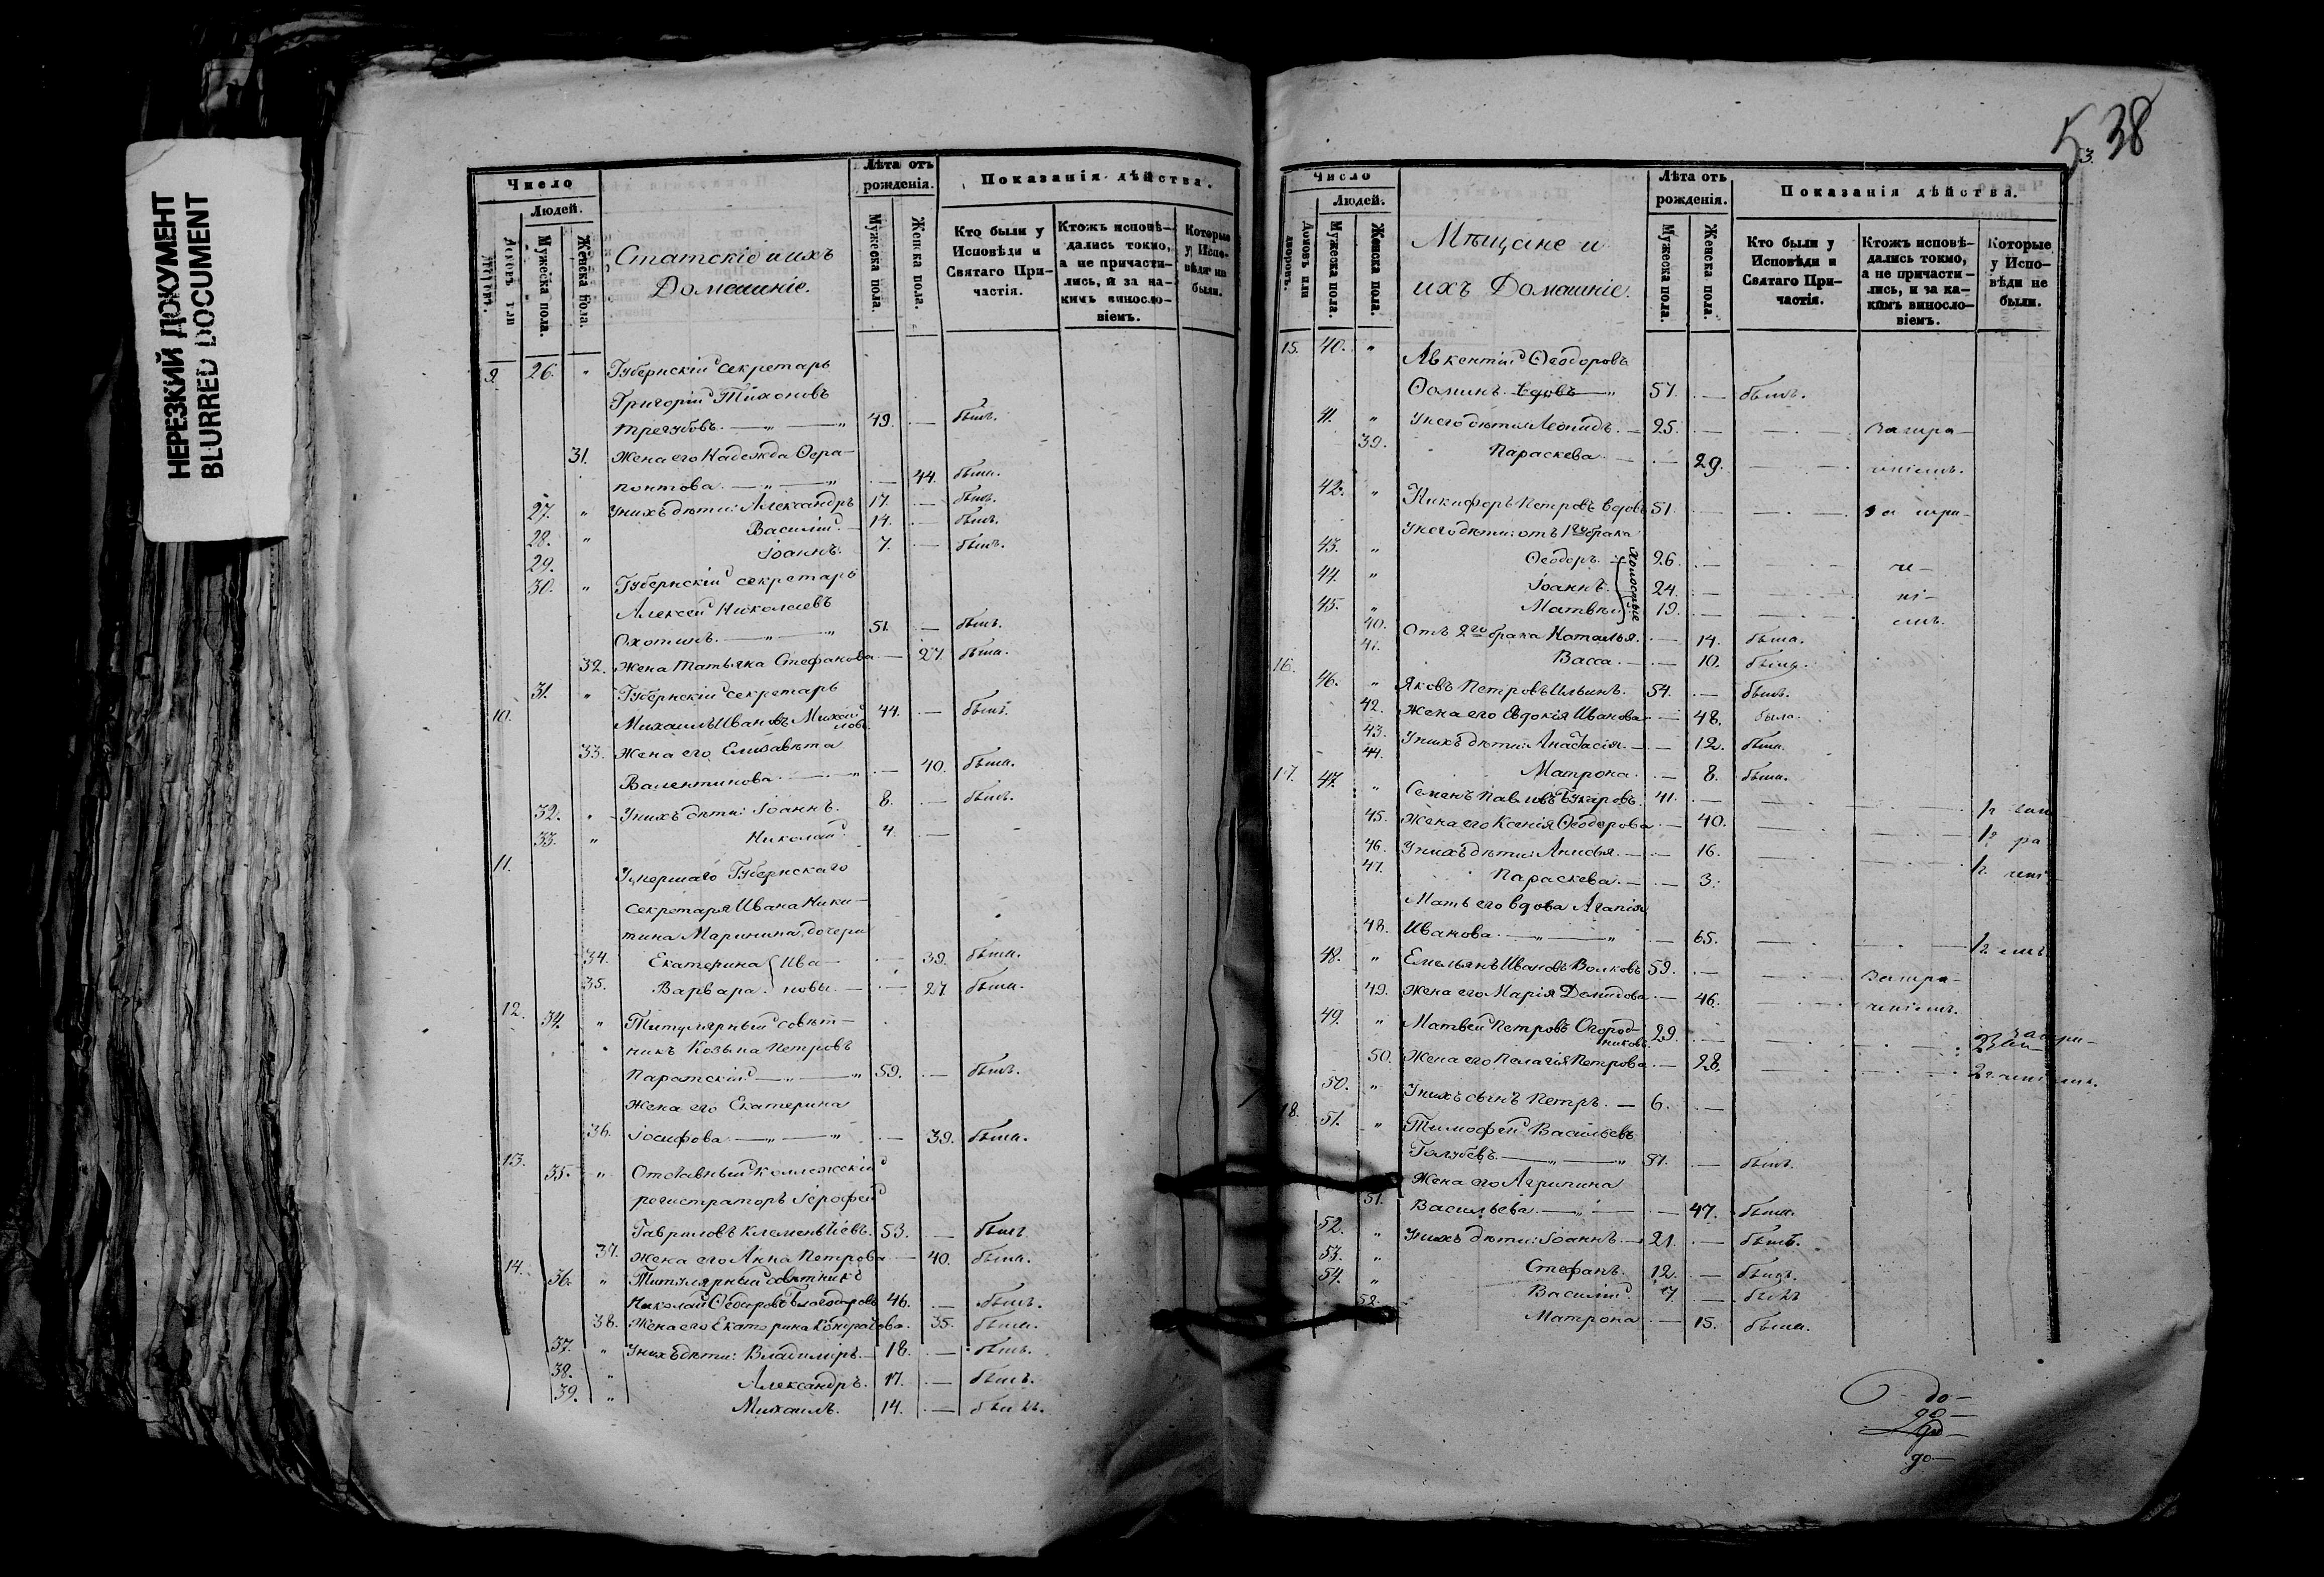 НЕРЕЗКИЙ ДОКУМЕНТ
BLURRED DOCUMENT
Число
Людей.
Домовъ или дворовъ.
Мужеска пола.
Женска пола.
Статскіе и ихъ
Домашніе.
Лѣта отъ рожденія.
Мужеска пола.
Женска пола.
Показанія дѣйства.
Кто были у Исповѣди и Святаго Причастія.
Ктожъ исповѣдались токмо, а не причастились, и за какимъ винословіемъ.
Которые у Исповѣди не были.
9. 26. " Губернскій секретарь
Григорій Тихоновъ
Трегубовъ. — " — " 49. — былъ.
31. Жена его Надежда Ѳера-
понтова. — " — " — 44. была.
27. " У нихъ дѣти: Александръ 17. — былъ.
28. " Василій. — 14. — былъ.
29. Іоаннъ. 7. — былъ.
30. " Губернскій секретарь
Алексей Николаевъ
Охотинъ. — " — " 51. — былъ.
32. Жена Татьяна Стефанова — 27. была.
31. " Губернскій секретарь
10. Михаилъ Ивановъ Михай-
ловъ. 44. — былъ.
33. Жена его Елизавета
Валентинова. — " — 40. была.
32. " У нихъ дѣти: Іоаннъ. 8. — былъ.
33. " Николай. 4. —
11. Умершаго Губернскаго
секретаря Ивана Ники-
тина Маринина, дочери
34. Екатерина { Ива- — 39. была.
35. Варвара. { новы. — — 27. была.
12. 34. " Титулярный совѣт-
никъ Козьма Петровъ
— " — " 59. — былъ.
Жена его Екатерина
36. Іосифова. — " — " — 39. была.
13. 35. " Отставный коллежскій
регистраторъ Іерофей
Гавриловъ Клементіевъ. 53. — былъ
37. Жена его Анна Петрова — 40. была.
14. 36. " Титулярный совѣтникъ
Николай Ѳедоровъ 46. — былъ.
38. Жена его Екатерина Кондратова. 35. была.
37. " У нихъ дѣти: Владиміръ. — 18. — былъ.
38. " Александръ. 17. — былъ.
39. " Михаилъ. 14. — былъ.
538
3.
Число
Людей.
Домовъ или дворовъ.
Мужеска пола.
Женска пола.
Мѣщане и
ихъ Домашніе.
Лѣта отъ рожденія.
Мужеска пола.
Женска пола.
Показанія дѣйства.
Кто были у Исповѣди и Святаго Причастія.
Ктожъ исповѣдались токмо, а не причастились, и за какимъ винословіемъ.
Которые у Исповѣди не были.
15. 40. " Авкентій Ѳеодоровъ
Ѳоминъ. вдовъ — " 57. — былъ.
41. " У него дѣти: Леонидъ. — 25. — —
39. Параскева. — — 29. —
42. " Никифоръ Петровъ вдовъ 51. — —
У него дѣти: отъ 1го брака
43. " Ѳеодоръ. — 26. —
44. " Іоаннъ. — холостые 24. —
45. " Матвѣй. 19. —
40. Отъ 2го брака Наталья. — 14. была.
41. Васса. — — 10. была.
16. 46. " Яковъ Петровъ Ильинъ. 54. — былъ.
42. Жена его Евдокія Иванова — 48. была.
43. У нихъ дѣти: Анастасія. — — 12. была.
44. Матрона. — 8. была.
17. 47. " Семенъ Павловъ 41. —
45. Жена его Ксенія Ѳеодорова — 40.
46. У нихъ дѣти: Анисья. — — 16.
47. Параскева. — — 3.
Мать его вдова Агапія
48. Иванова. — " — " — 65.
48. " Емельянъ Ивановъ Волковъ 59. —
49. Жена его Марія Демидова. — 46.
49. " Матвей Петровъ Огород-
никовъ. 29. —
50. Жена его Пелагія Петрова — 28.
50. " У нихъ сынъ Петръ. — 6. —
18. 51. " Тимофей Васильевъ
Голубевъ. — " — " 51. — былъ.
Жена его Агрипина
51. Васильева. — " — — 47. была.
52. " У нихъ дѣти: Іоаннъ. — 21. — былъ.
53. " Стефанъ. 12. — былъ.
54. " Василій. 7. — былъ
52. Матрона. — 15. была.
до—
до—
до—
до—